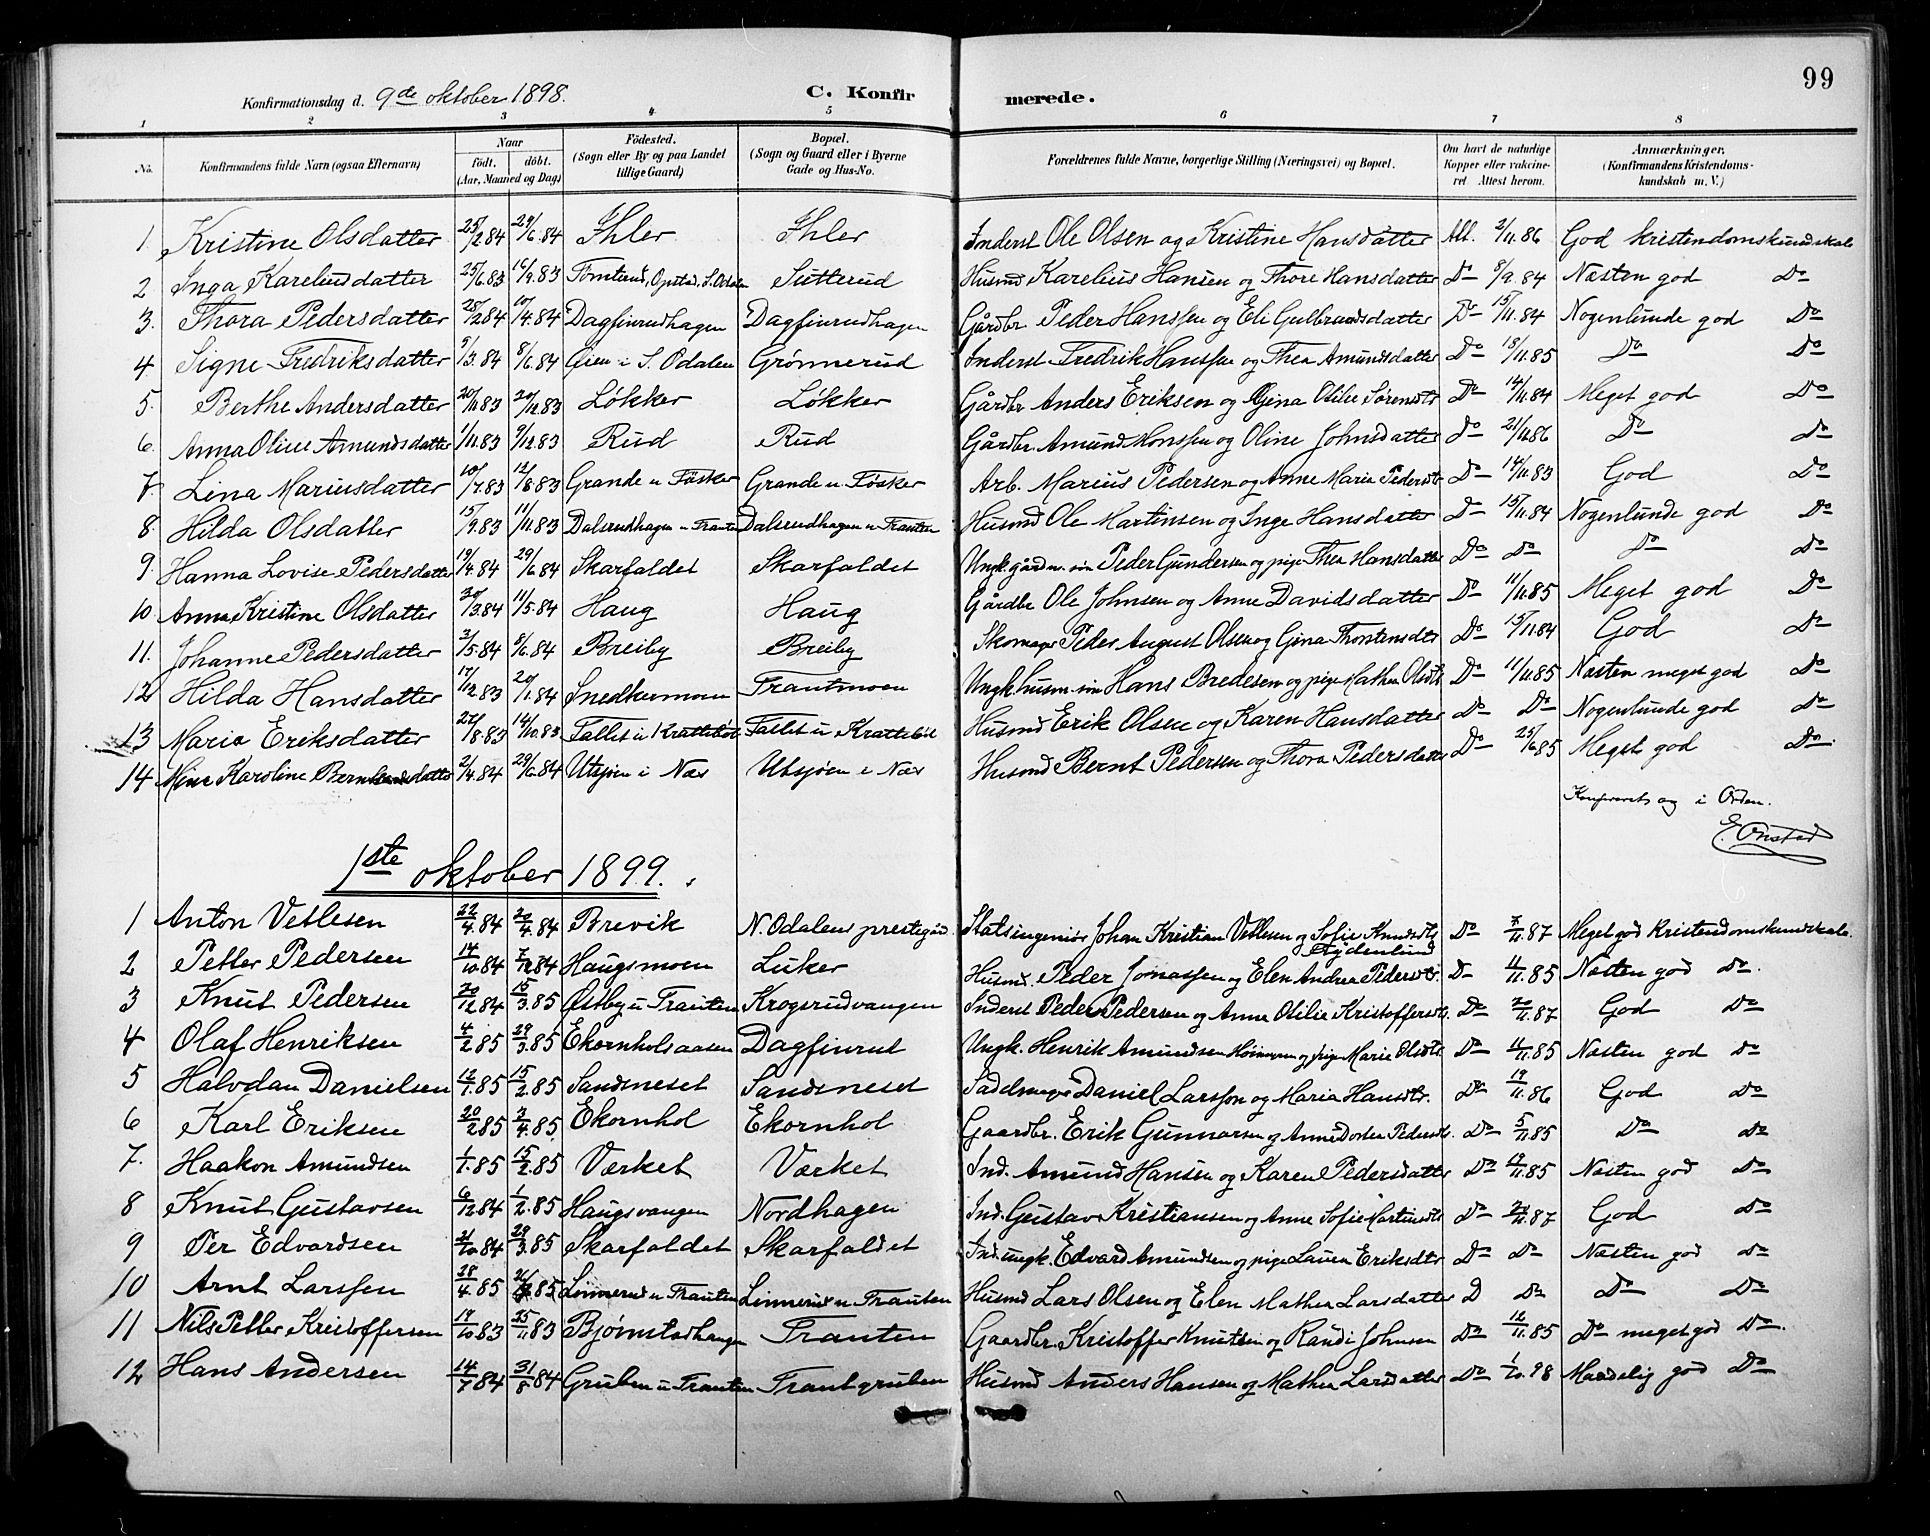 99
Konfirmationsdag d. 9de oktober 1898. C. Konfirmerede.
1 2 3 4 5 6 7 8
No. Konfirmandens fulde Navn (ogsaa Efternavn) Naar født. døbt. (Aar, Maaned og Dag) Fødested. (Sogn eller By og paa Landet tillige Gaard) Bopæl. (Sogn og Gaard eller i Byerne Gade og Hus-No. Forældrenes fulde Navne, borgerlige Stilling (Næringsvei) og Bopæl. Om havt de naturlige Kopper eller vakcineret. Attest herom. Anmærkninger. (Konfirmandens Kristendomskundskab m. V.)
1. Kristine Olsdatter 25/2 84 29/6. 84 Ihler Ihler Inderst Ole Olsen og Kristine Hansdatter Att. 2/11. 86 God kristendomskundskab
2 Inga Kareliusdatter 25/6. 83 16/9. 83 Tomterud, Opstad, S. Odalen Sutterud Husmd Karelius Hansen og Thore Hansdatter Do 8/9. 84 Næsten god Do
3. Thora Pedersdatter 28/2 84 10/4. 84 Dagfinrudhagen Dagfinrudhagen Gårdbr. Peder Hanssen og Eli Gulbrandsdatter Do 15/11. 84 Nogenlunde god Do
4 Signe Fredriksdatter 9/3. 84 8/6. 84 Øien i S. Odalen Grønnerud Inderst Fredrik Hanssen og Thea Amundsdatter Do 18/11. 85 Do Do
5. Berthe Andersdatter 20/10 83 20/12. 83 Løkker Løkker Gårdbr Anders Eriksen og Gina Otilie Sørensdtr Do 14/11. 84 Meget god Do
6. Anna Oline Amundsdatter 1/11. 83 9/12. 83 Rud Rud Gårdbr. Amund Monssen og Oline Johnsdatter Do 21/11. 86 Do Do
7. Lina Mariusdatter 10/7. 83 12/8. 83 Grande u Fösker Grande u. Føsker Arb. Marius Pedersen og Anne Marie Pedersdtr Do 14/11. 83 God Do
8. Hilda Olsdatter 15/9. 83 11/11. 83 Dalsrudhagen u Trauten Dalsrudhagen u Trauten Husmd Ole Martinsen og Inge Hansdatter Do 15/11. 84 Nogenlunde god Do
9. Hanna Lovise Pedersdatter 19/4. 84 29/6. 84 Skarfaldet Skarfaldet Ungk. gårdm. søn Peder Gundersen og pige Thea Hansdatter Do Do Do Do
10 Anna Kristine Olsdatter 20/3. 84 11/5. 84 Haug Haug Gårdbr Ole Johnsen og Anne Davidsdatter Do 11/11. 85 Meget god Do
11. Johanne Pedersdatter 3/5. 84 8/6. 84 Breiby Breiby Skomager Peder August Olsen og Gina Thorstensdtr Do 15/11. 84 God Do
12 Hilda Hansdatter 17/12 83 20/1. 84 Snedkermoen Trautmoen Ungk husm. søn Hans Bredesen og pige Mathea Olsdtr Do 11/11. 85 Næsten meget god Do
13 Maria Eriksdatter 27/8. 83 14/10. 83 Fallet u Krattebøl Fallet u Krattebøl Husmd Erik Olsen og Karen Hansdatter Do Do Nogenlunde god Do
14 Mine Karoline Berntsdatter 21/4. 84 29/6. 84 Utsjøen i Næs Utsjøen i Næs Husmd Bernt Pedersen og Thora Pedersdatter Do 25/6 85 Meget god Do
Konfereret og i Orden.
E. Onstad
1ste oktober 1899.
1 Anton Vetlesen 22/4. 84 20/4. 84 Brevik N. Odalens prestegård Statsingeniør Johan Kristian Vetlesen og Sofie Knudsdtr Frydenlund Do 7/11. 87 Meget god Kristendomskundskab.
2 Petter Pedersen 14/10 84 7/12 84 Haugsmoen Luker Husmd. Peder Jonassen og Elen Andrea Pedersdtr. Do 11/11. 85 Næsten god Do.
3 Knut Pedersen 20/12 84 15/3. 85 Østby u Trauten Krogsrudvangen Inderst Peder Pedersen og Anne Otilie Kristoffersdtr. Do 20/11. 87 God Do
4 Olaf Henriksen 4/2 85 29/3. 85 Ekornholsaasen Dagfinrud Ungk. Henrik Amundsen og pige Marie Olsdtr. Do 11/11. 85 Næsten god Do
5 Halvdan Danielsen 12/1. 85 15/2. 85 Sandsneset Sandsneset Sadelmager Daniel Larsson og Maria Hansdtr. Do 19/11. 86 God Do
6 Karl Eriksen 20/2 85 2/4. 85 Ekornhol Ekornhol Gaardbr. Erik Gunnarsen og Anne Dortea Pedersdtr. Do 5/11. 85 Do Do
7. Haakon Amundsen 1/1. 85 15/2. 85 Værket Værket Ind. Amund Hansen og Karen Pedersdatter Do 17/11. 85 Næsten god Do
8 Knut Gustavsen 6/12 84 1/2. 85 Haugsvangen Nordhagen Ind. Gustav Kristiansen og Anne Sofie Martinsdtr Do 20/11. 87 God Do
9 Per Edvardsen 21/10. 84 29/3. 85 Skarfaldet Skarfaldet Ind. ungk. Edvard Amundsen og pige Laura Eriksdtr Do Do Næsten god Do
10 Arnt Larssen 28/4. 85 85 Linnerud u Trauten Linnerud u Trauten Husmd Lars Olsen og Elen Mathea Larsdatter D Do Do Do
11 Nils Petter Kristoffersen 17/10 83 25/11 83 Bjørnstadhaugen Trauten Gaardbr. Kristoffer Knutsen og Randi Johnsen Do 12/11. 85 Do meget god Do.
12 Hans Andersen 14/7 84 31/8 84 Gruben u Trauten Trautgruben Husmd Anders Hansen og Mathea Larsdatter Do 1/10. 98 Maadelig god Do